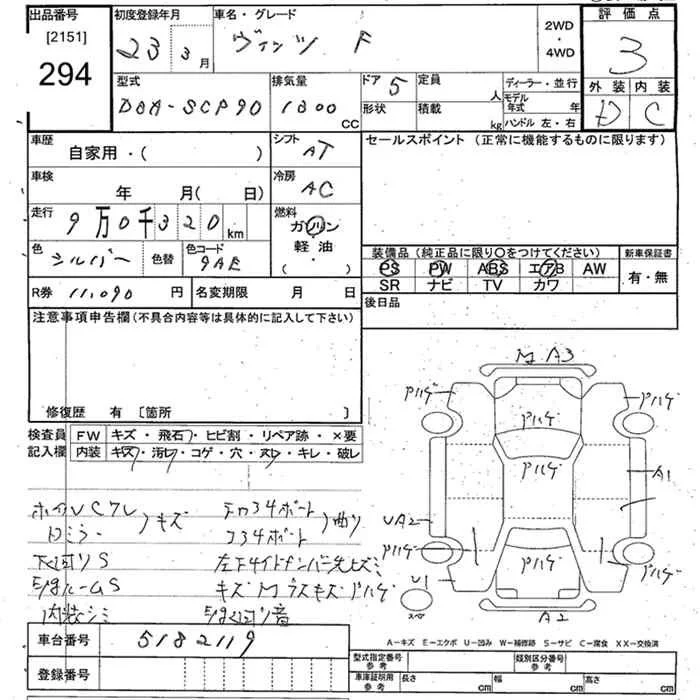 出品番号 初度登録年月 車名・グレード 評価点
[2151] 23 3月 ヴィッツ F 2WD ・ 4WD 3
294
型式 排気量 ドア 5 定員 人 ディーラー・並行 外装 内装
DBA-SCP90 1300 CC 形状 積載 kg モデル年式 年 D C
ハンドル 左・右
車歴 シフト セールスポイント (正常に機能するものに限ります)
自家用・( ) AT
車検 冷房
年 月(日) AC
走行 燃料
9万0千320km ガソリン
軽油
( ・ )
色 色替 色コード 装備品 (純正品に限り○をつけてください) 新車保証書
シルバー 9AE PS PW ABS エアB AW 有・無
SR ナビ TV カワ
R券 11,090 円 名変期限 月 日 後日品
注意事項申告欄 (不具合内容等は具体的に記入して下さい)
修復歴 有 [箇所 ]
検査員 FW キズ・飛石・ヒビ割・リペア跡・×要
記入欄 内装 キズ・汚れ・コゲ・穴・スレ・キレ・破レ
M A3
Pハゲ Pハゲ Pハゲ
Pハゲ
A1
UA2
Pハゲ Pハゲ Pハゲ
U1
スペア A2
キズ 34ボート 曲り
Dミラー 34ボート
下回りS
キズ M ラスキズ Pハゲ
内装シミ 音
A-キズ E-エクボ U-凹み W-補修跡 S-サビ C-腐食 XX-交換済
車台番号 5182119
登録番号
型式指定番号 参考 類別区分番号 参考
車庫証明用 参考 長さ cm 幅 cm 高さ cm